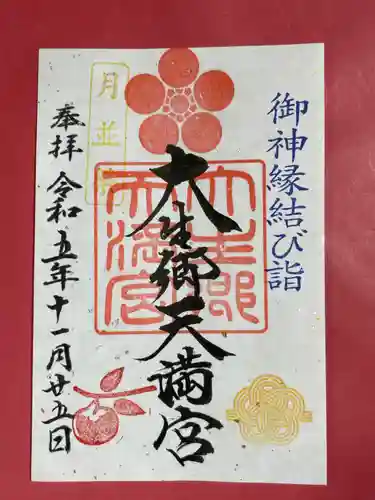 御神縁結び詣
大生郷天満宮
大生郷
天満宮
月並祭
奉拝 令和五年十一月廿五日